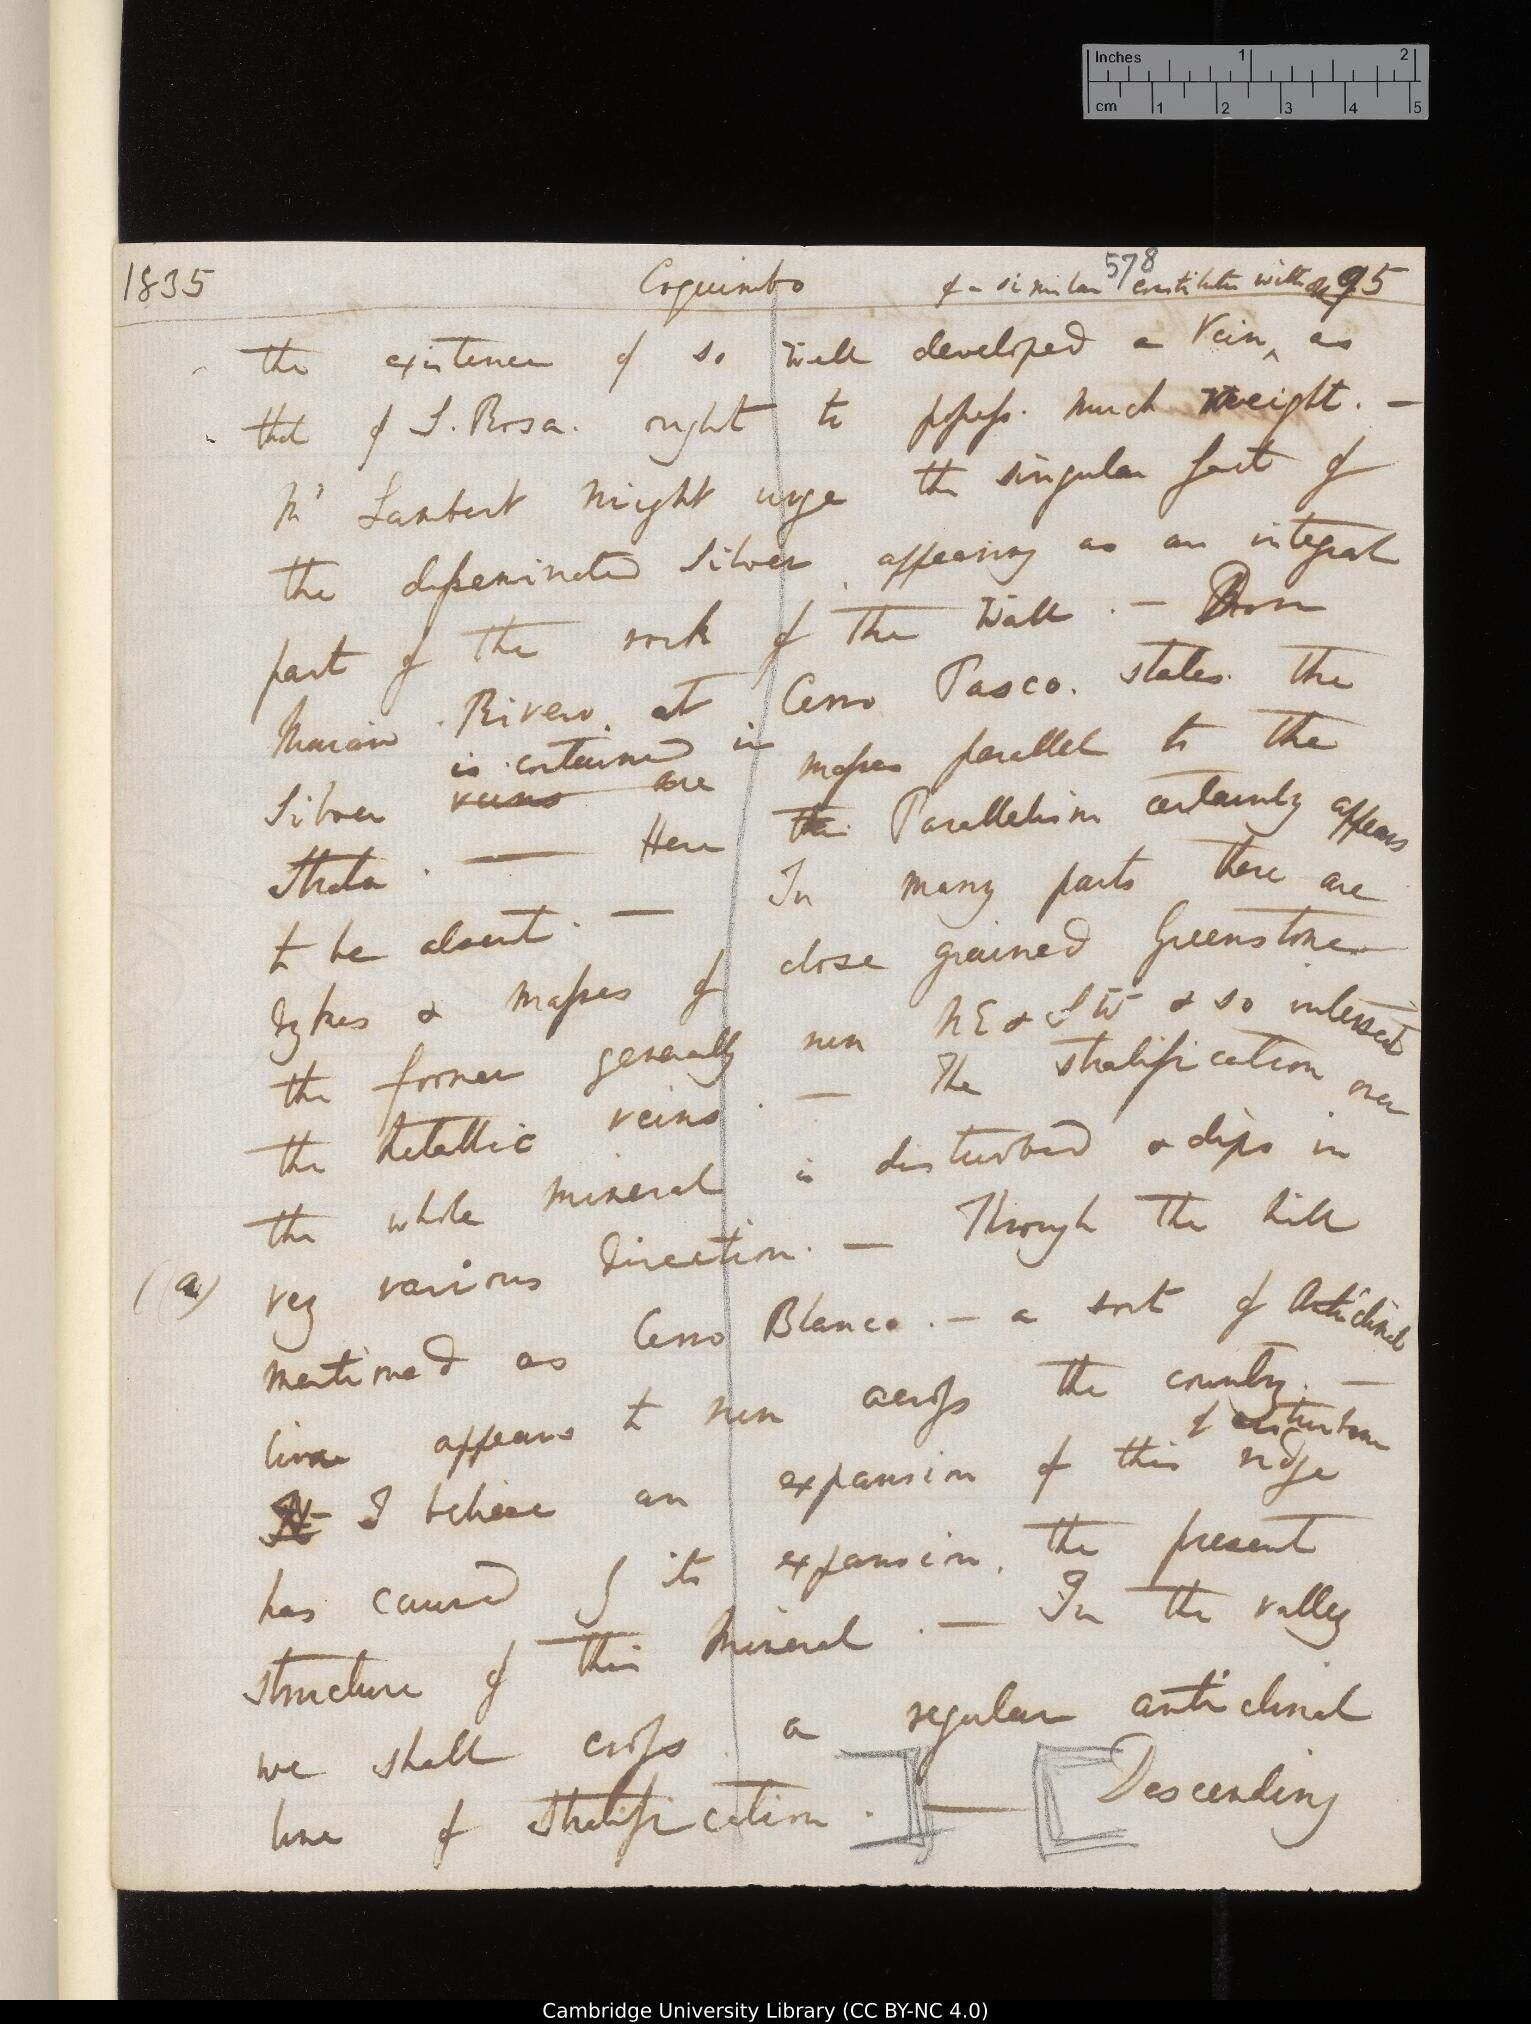 Inches 1 2
cm 1 2 3 4 5
578
1835 Coquimbo 95
of a similar constitution with
the existence of so well developed a Vein ^ as
that of S. Rosa. ought to possess much weight. —
Mr Lambert might urge the singular fact of
the disseminated Silver appearing as an integral
part of the rock of the Wall. — Don
Mariano Rivero, at Cerro Pasco. states the
is contained in
Silver veins are masses parallel to the
Strata. — Here the Parallelism certainly appears
to be absent. — In many parts there are
dykes & masses of close grained Greenstone
the former generally run NE & SW & so intersect
the Metallic veins. — The stratification over
the whole mineral is disturbed & dips in
(a) very various direction. — Through the hill
mentioned as Cerro Blanco. — a sort of Anticlinal
line appears to run across the country. —
of disturbance
I believe an expansion of this ridge
has caused by its expansion, the present
structure of this Mineral. — In the valley
we shall cross a regular anticlinal
line of Stratification. ] — [ Descending
Cambridge University Library (CC BY-NC 4.0)